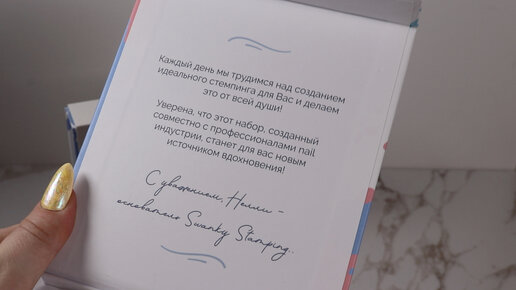 Каждый день мы трудимся над созданием
идеального стемпинга для Вас и делаем
это от всей души!
Уверена, что этот набор, созданный
совместно с профессионалами nail
индустрии, станет для вас новым
источником вдохновения!
С уважением, Нелли -
основатель Swanky Stamping..